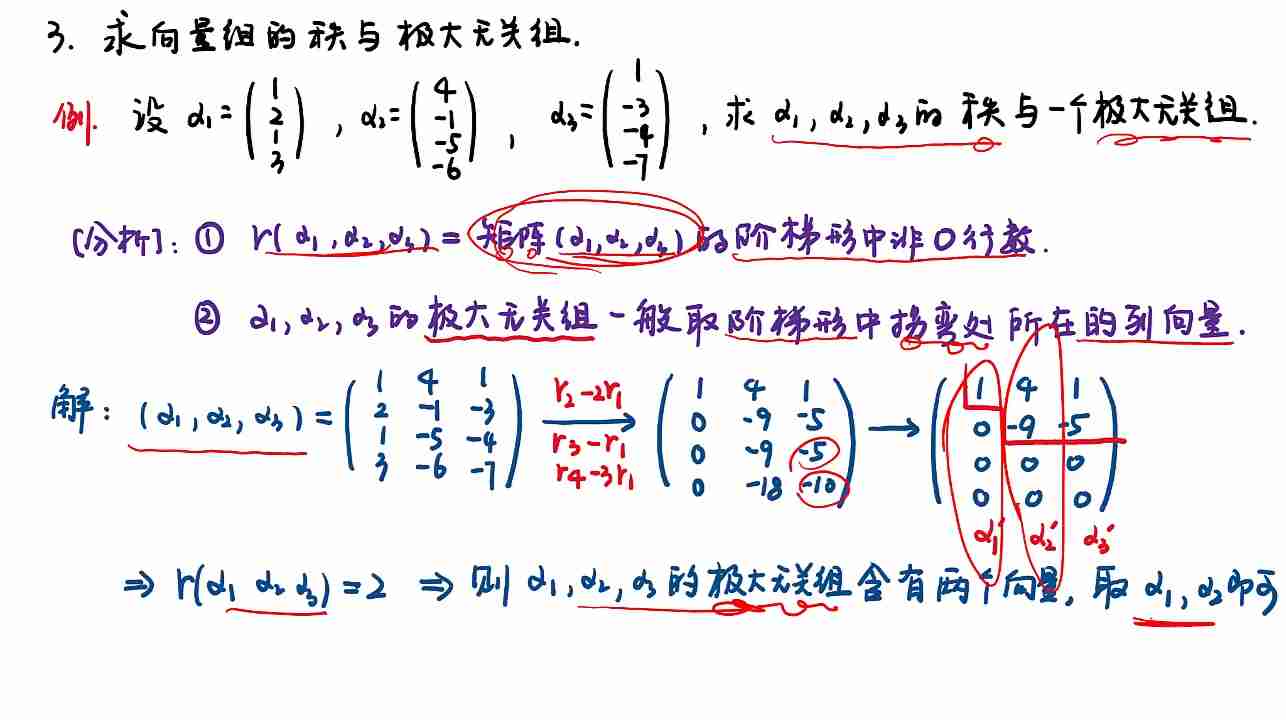 3. 求向量组的秩与极大无关组.
例. 设 α₁=(1 2 1 3), α₂=(4 -1 -5 -6), α₃=(1 -3 -4 -7), 求 α₁, α₂, α₃的秩与一个极大无关组.
[分析]: ① r(α₁,α₂,α₃)=矩阵(α₁,α₂,α₃)的阶梯形中非0行数.
② α₁,α₂,α₃的极大无关组一般取阶梯形中拐弯处所在的列向量.
解: (α₁,α₂,α₃)=(1 4 1
2 -1 -3
1 -5 -4
3 -6 -7)
r₂-2r₁
r₃-r₁
r₄-3r₁
→ (1 4 1
0 -9 -5
0 -9 -5
0 -18 -10)
→ (1 4 1
0 -9 -5
0 0 0
0 0 0)
α₁′ α₂′ α₃′
⇒ r(α₁ α₂ α₃)=2 ⇒ 则 α₁,α₂,α₃的极大无关组含有两个向量, 取 α₁,α₂即可